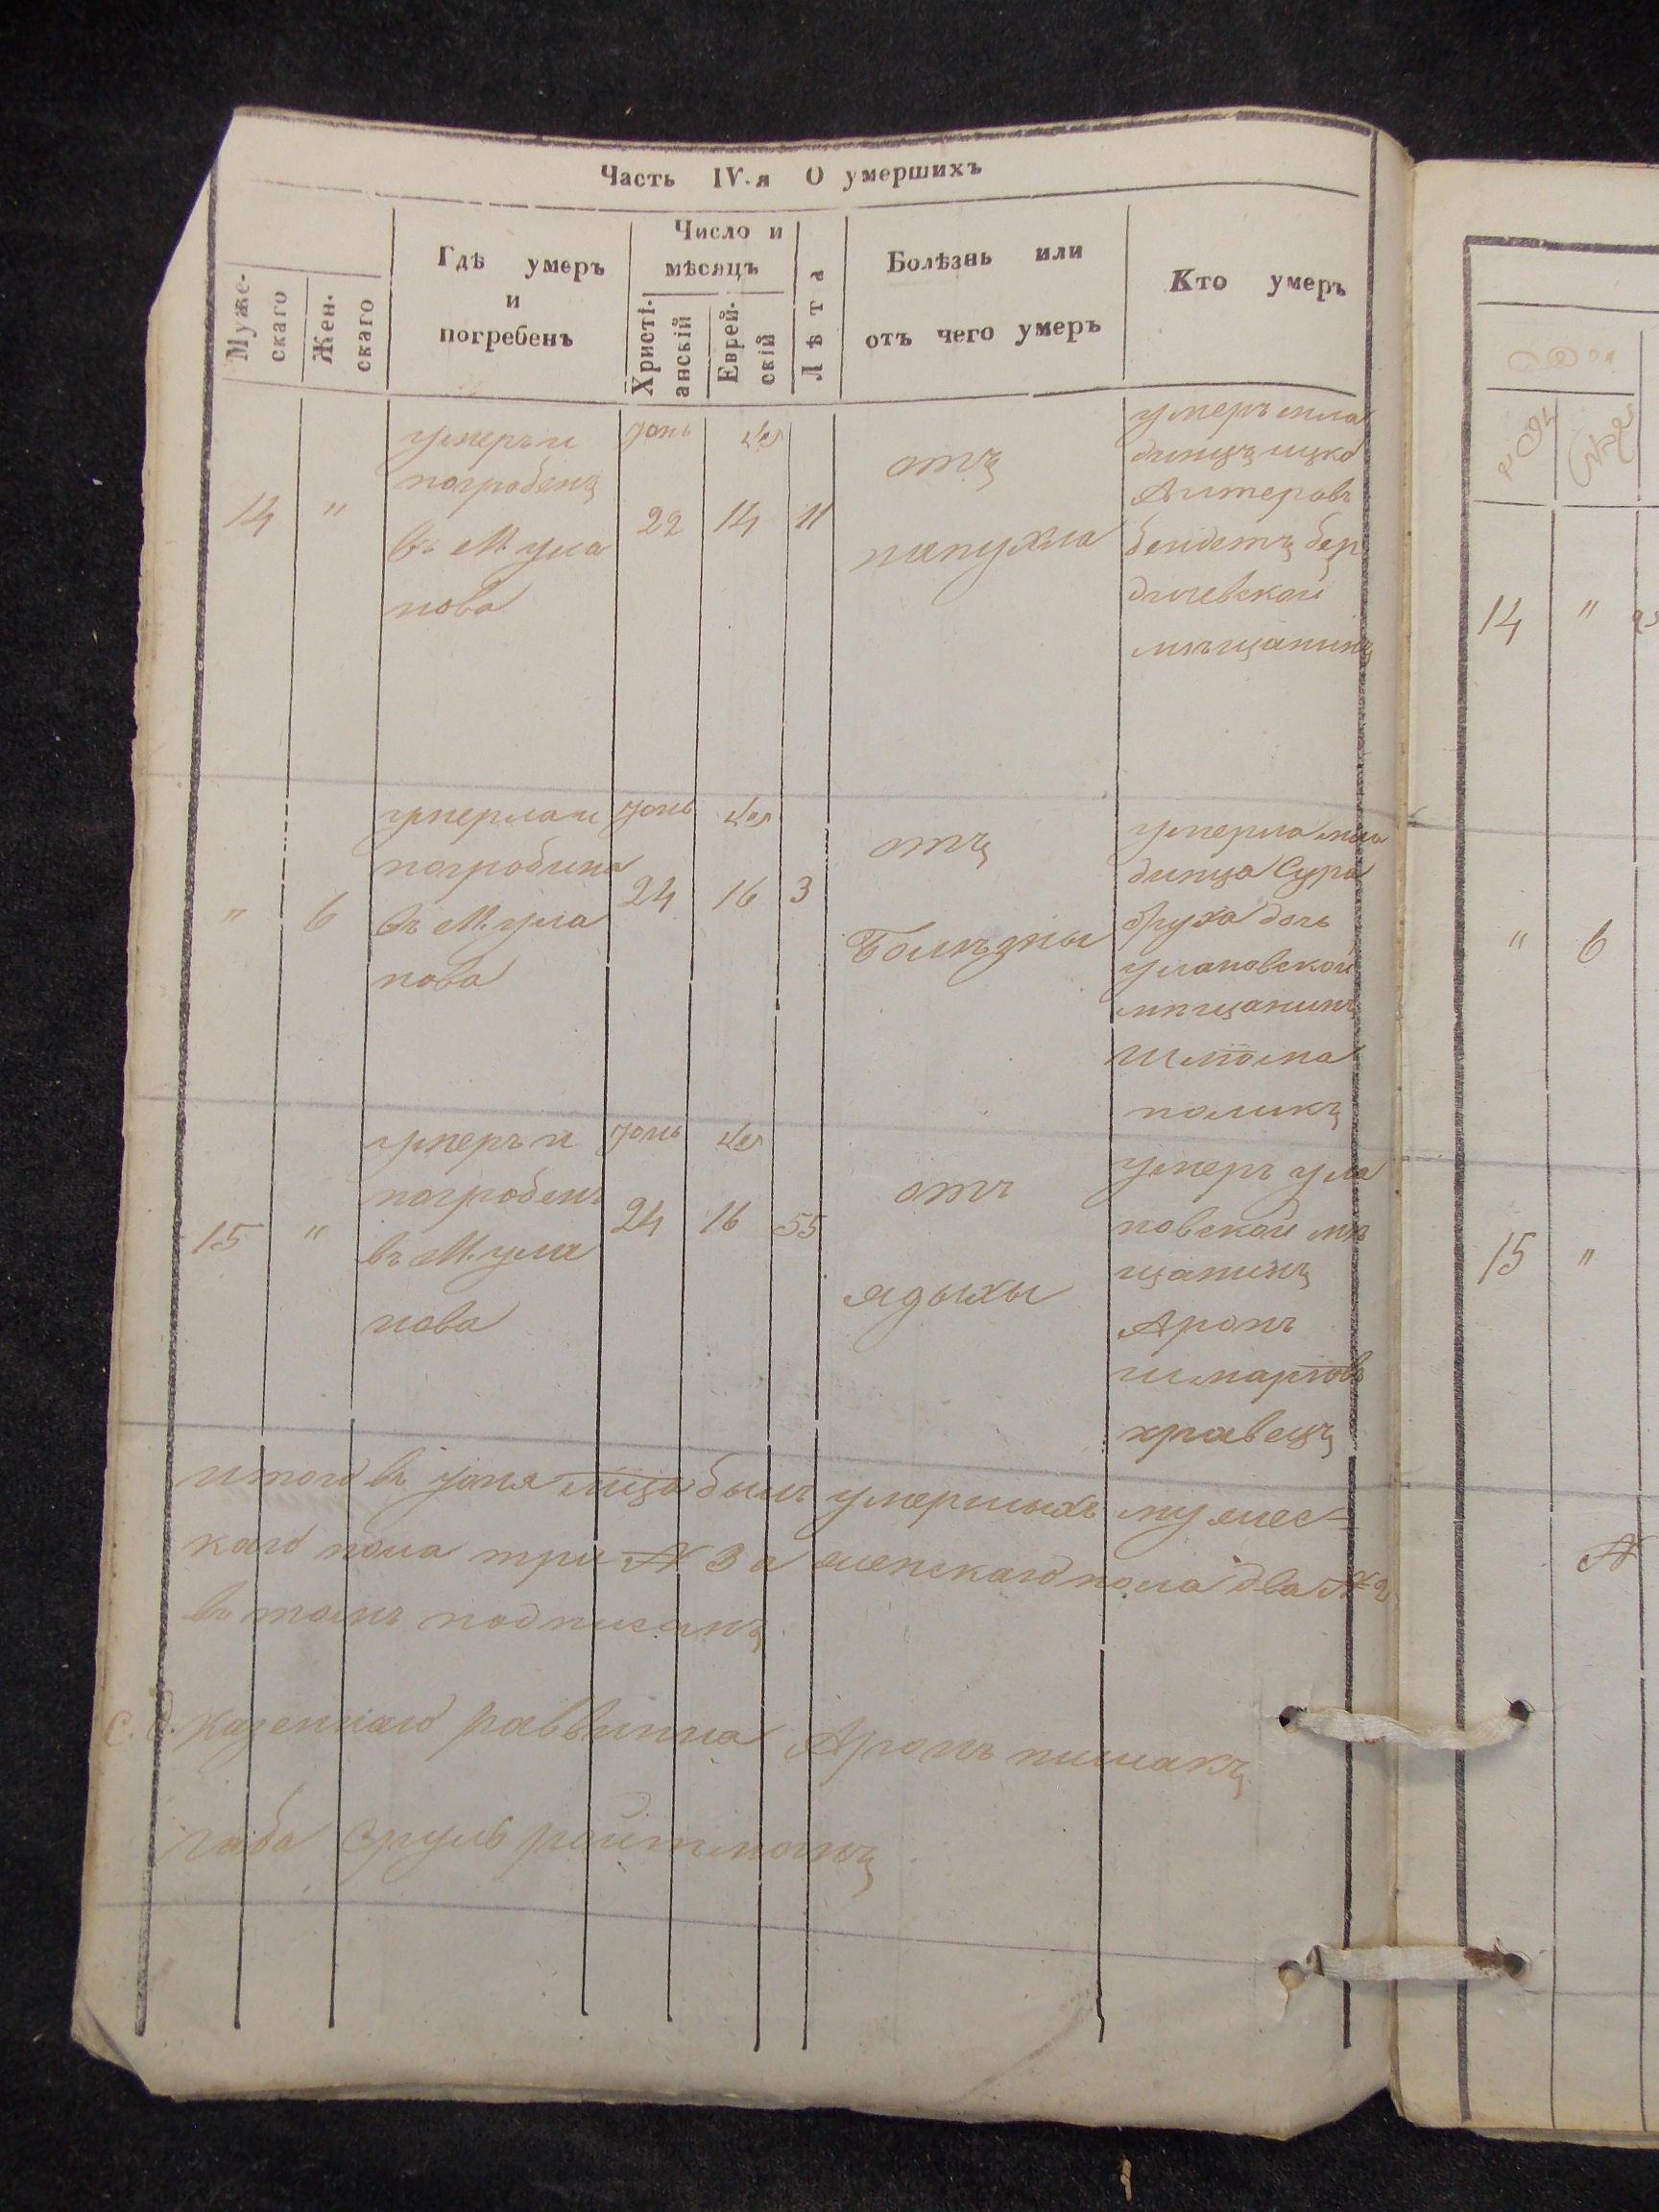 Часть IV.я О умершихъ
Муже-
скаго
Жен-
скаго
Гдѣ умеръ
и
погребенъ
Число и
мѣсяцъ
Христі-
анскій
Еврей-
скій
Лѣта
Болѣзнь или
отъ чего умеръ
Кто умеръ
14
"
умеръ и
погребенъ
въ М. ула
нова
юнь
22
14
11
отъ
умеръ мла
денецъ ицко
бер
дичевской
мѣщанинъ
"
6
умерла и
погребена
въ М. ула
нова
юнь
24
16
3
отъ
Болѣзны
умерла мла
денца Сура
бруха дочь
улановской
мѣщанинъ
Шлёма
поликъ
15
"
умеръ и
погребенъ
въ М. ула
нова
юнь
24
16
55
отъ
ядыхы
умеръ ула
новской мѣ
щанинъ
Аронъ
кравецъ
итого въ юня мца былъ умершыхъ мужес=
каго пола три № 3 а женскаго пола два № 2
въ томъ подписанъ
С. д. казеннаго раввинна Аронъ
габа Сруль ройтманъ
14
"
"
6
15
"
№